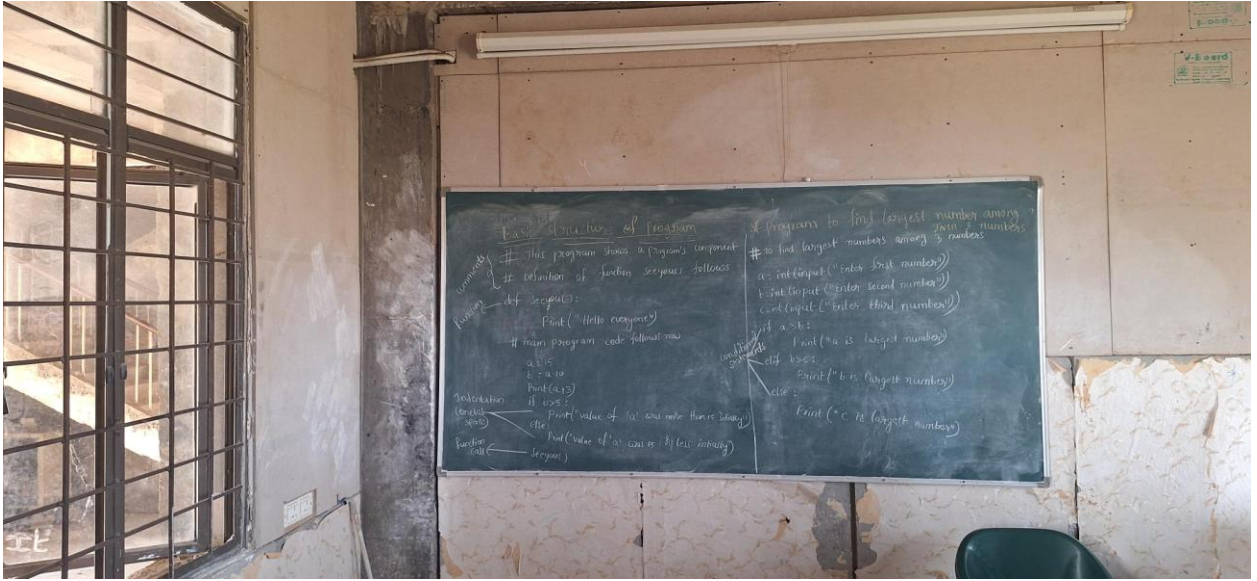 Basic structure of Program
comments
# This program shows a program's component
# Definition of function seeyou() follows
Function
def seeyou():
Print("Hello everyone")
# main program code follows now
a=15
b = a-10
Print(a+3)
Indentation
(one tab
space)
if b>5:
Print("value of 'a' was more than 15 initially")
else
Print("value of 'a' was 15 or less initially)
Function
call
seeyou()
# Program to find largest number among
given 3 numbers
# to find largest numbers among 3 numbers
a=int(input("Enter first number"))
b=int(input("Enter second number"))
c=int(input("Enter third number"))
conditional
statements
if a>b:
Print("a is largest number")
elif b>c:
Print("b is largest number")
else:
Print("c is largest number")
V-Board